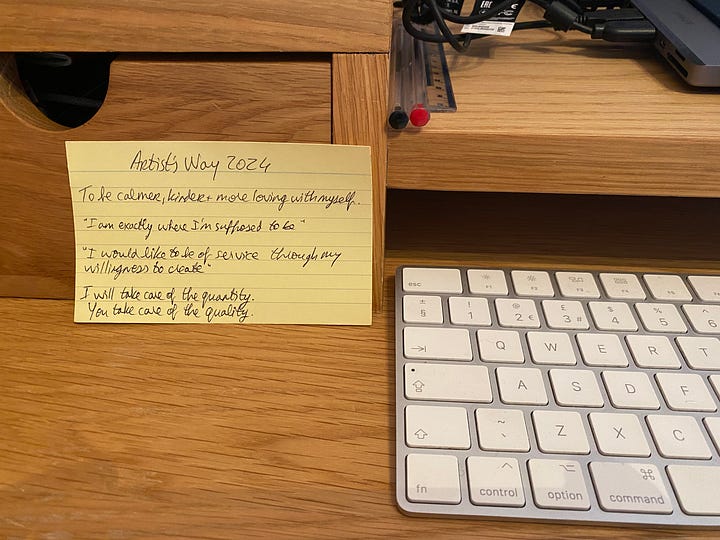 Artist's Way 2024
To be calmer, kinder + more loving with myself.
"I am exactly where I'm supposed to be"
"I would like to be of service through my
willingness to create"
I will take care of the quantity.
You take care of the quality.
EAC
FC
esc
F1
F2
F3
F4
F5
± §
! 1
@ 2 €
£ 3 #
$ 4
% 5
^ 6
Q W E R T
A S D F
~ `
Z X C
fn
control
option
command